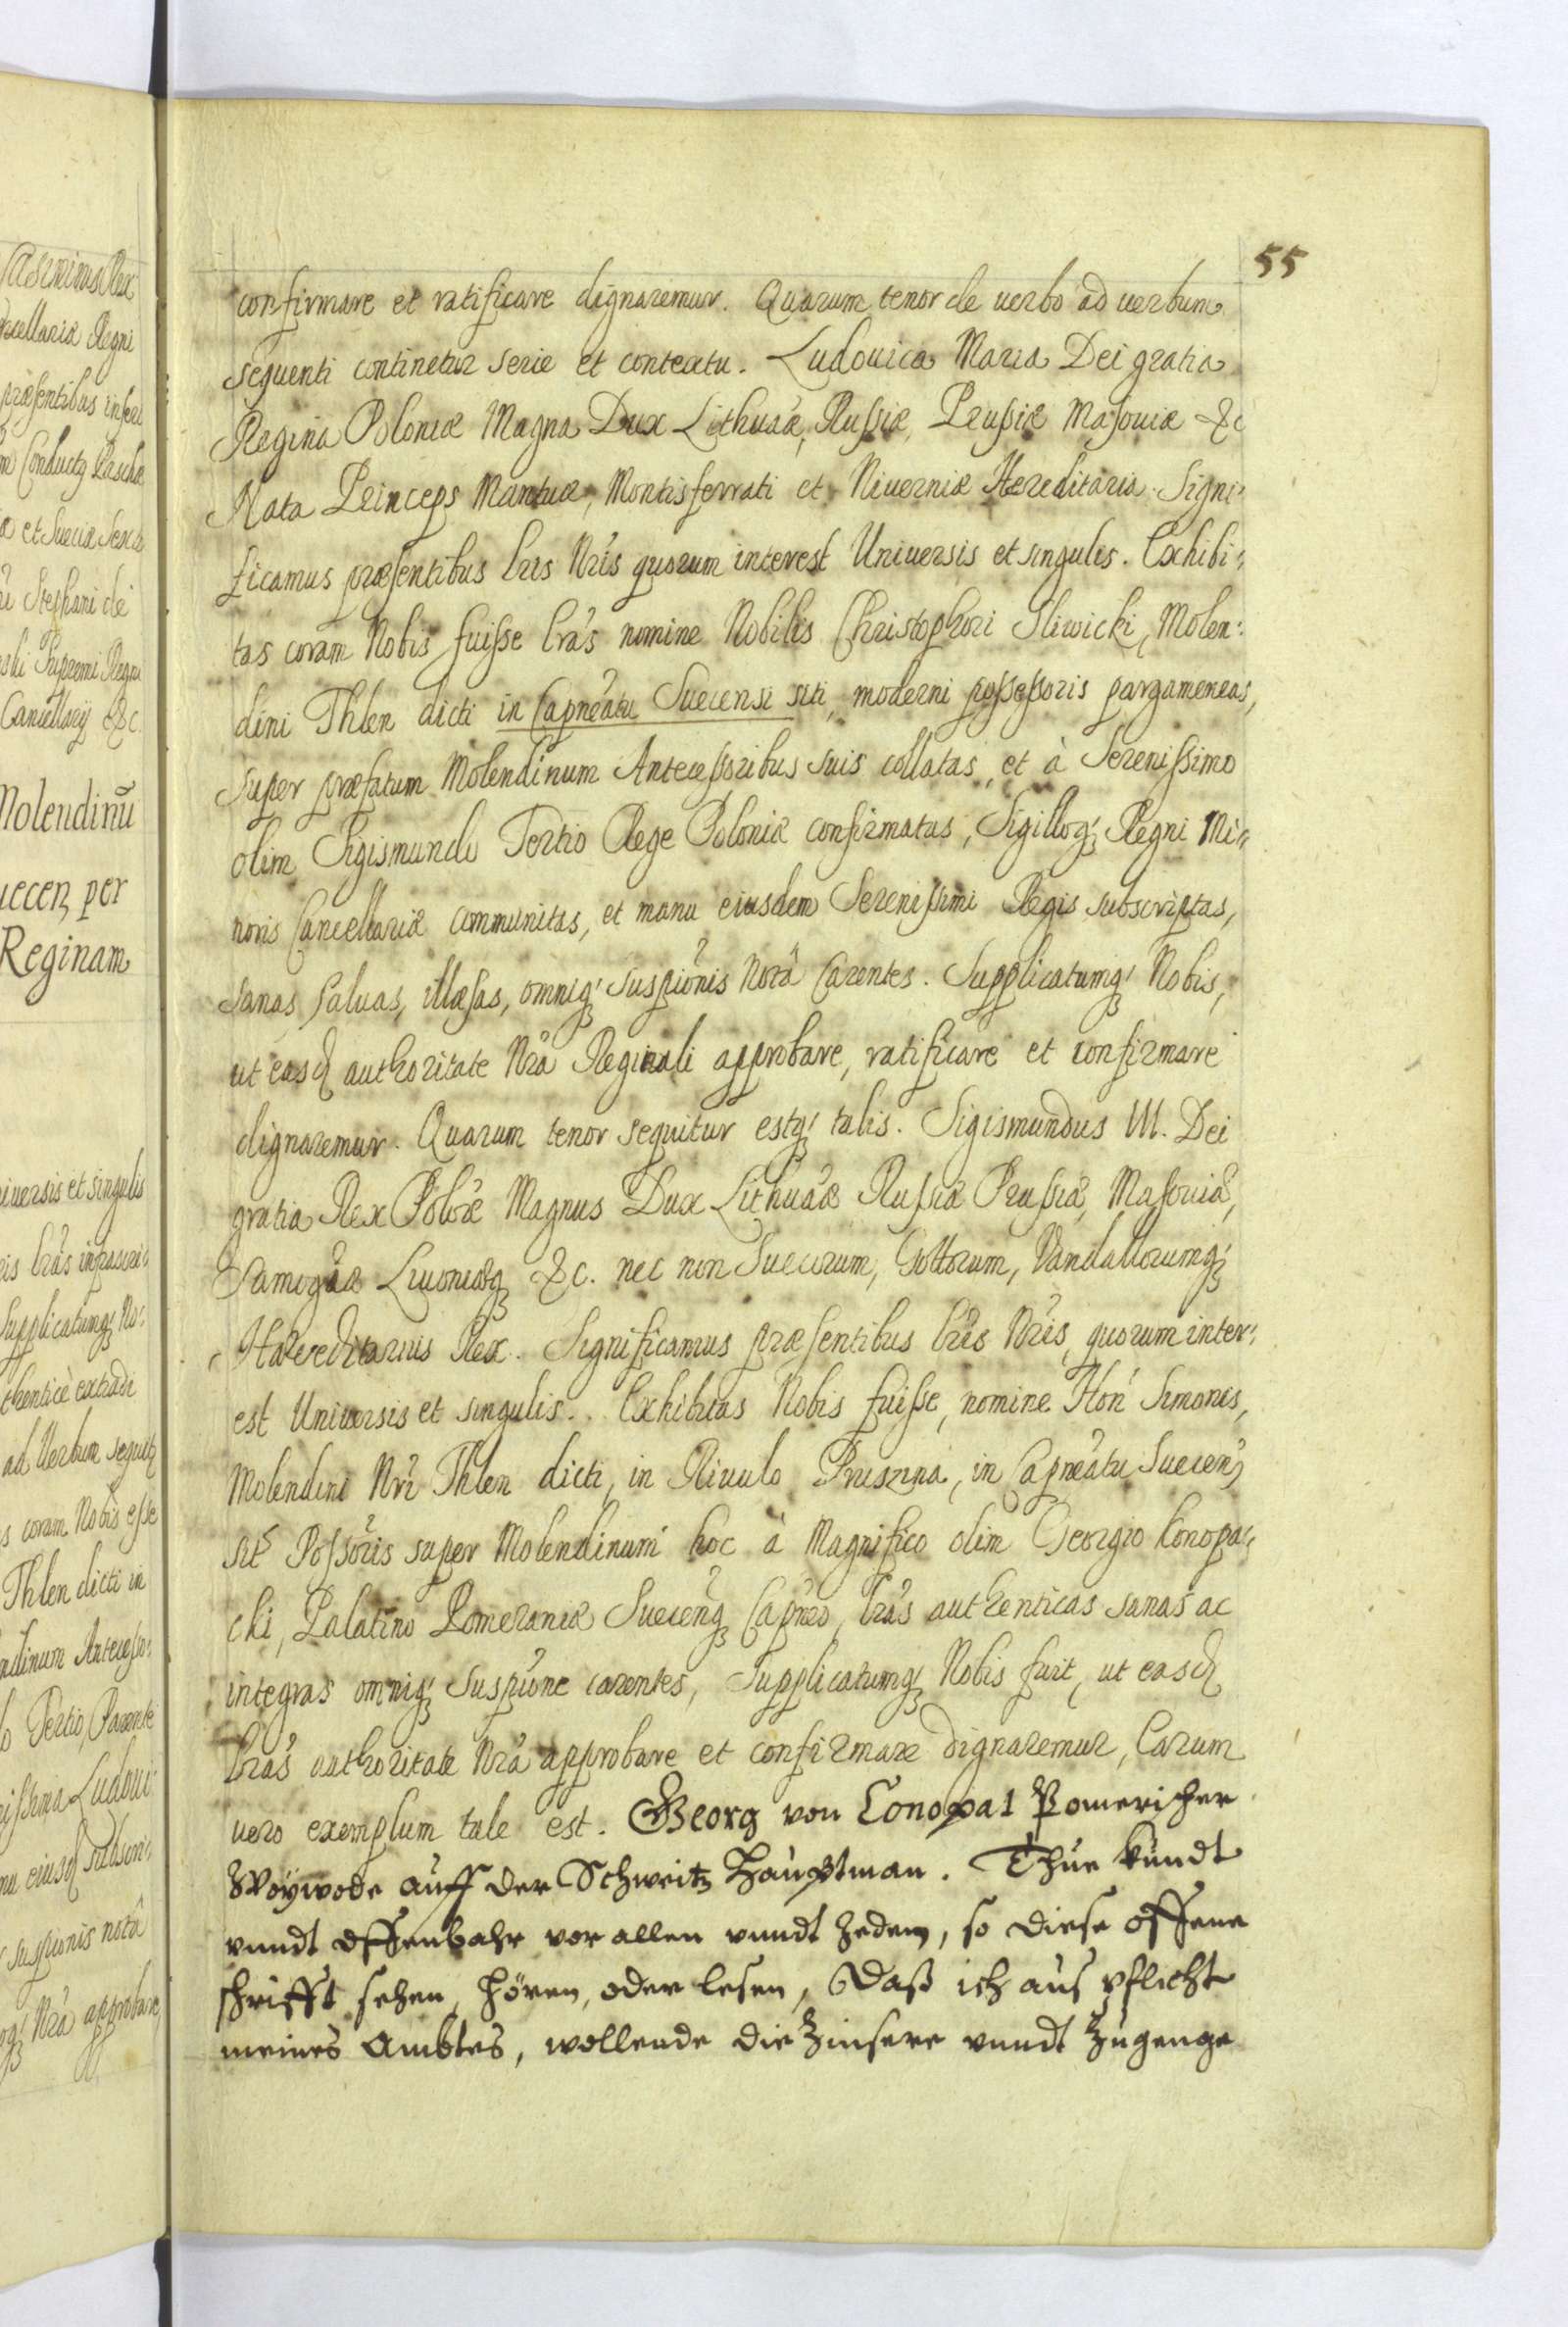 55
confirmare et ratificare dignaremur. Quarum tenor de uerbo ad uerbum
sequenti continetur serie et contextu. Ludouica Maria Dei gratia
Regina Poloniæ Magna Dux Lithuaæ, Russiæ, Prussiæ Masouiæ &c
Nata Princeps Mantuæ, Montisferrati et Niuerniæ Hereditaria. Signi-
ficamus præsentibus lris Nris quorum interest Uniuersis et singulis. Exhibi-
tas coram Nobis fuisse lras nomine Nobilis Christophori Sliwicki, Molen-
dini Thlen dicti in Capneatu Suecensi siti, moderni possessoris pargameneas,
super præfatum Molendinum Antecessoribus suis collatas, et à Serenissimo
olim Sigismundo Tertio Rege Poloniæ confirmatas, Sigilloq; Regni Mi-
noris Cancellariæ communitas, et manu eiusdem Serenissimi Regis subscriptas,
sanas saluas, illæsas, omniq; suspionis notâ Carentes. Supplicatumq; Nobis,
ut easd authoritate Nra Reginali approbare, ratificare et confirmare
dignaremur. Quarum tenor sequitur estq; talis. Sigismundus III. Dei
gratia Rex Poloæ Magnus Dux Lithuaæ Russiæ Prussiæ, Masouiæ,
Samogaæ Liuoniæq; &c. nec non Suecorum, Gottorum, Vandallorumq;
Hæreditarius Rex. Significamus præsentibus lris Nris, quorum inter-
est Uniuersis et singulis. Exhibitas Nobis fuisse, nomine Hon Simonis,
Molendini Nri Thlen dicti, in Riuulo Pruszina, in Capneatu Suecen
sit Possoris super Molendinum hoc à Magnifico olim Georgio Konopa-
cki, Palatino Pomeraniæ Suecenq; Capneo, lras authenticas sanas ac
integras omniq; suspione carentes, Supplicatumq; Nobis fuit, ut easd
lras authoritate Nra approbare et confirmare dignaremur, Earum
uero exemplum tale est. Georg von Conopat Pomericher
Woywode auff der Schweitz Hauptman. Thue kundt
vnndt offenbahr vor allen vnndt Jedem, so diese offene
schrifft sehen, hören, oder lesen, Daß ich aus pflicht
meines Ambtes, wollende die Zinsere vnndt Zugenge